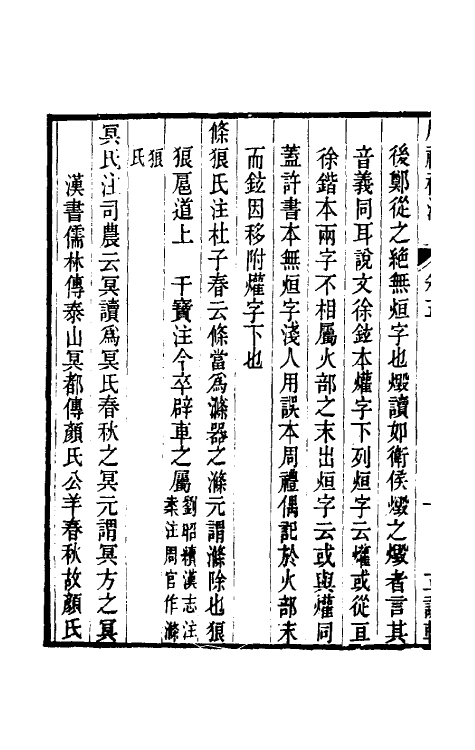 後鄭從之絕無烜字也燬讀如衛侯燬之燬者言其
音義同耳說文徐鉉本爟字下列烜字云爟或從亘
徐鍇本兩字不相屬火部之末出烜字云或與爟同
蓋許書本無烜字淺人用誤本周禮偶記於火部末
而鉉因移附爟字下也
條狼氏注杜子春云條當爲滌器之滌元謂滌除也狼
狼扈道上　干寶注今卒辟車之屬劉昭續漢志注案注周官作滌
狼氏
冥氏注司農云冥讀爲冥氏春秋之冥元謂冥方之冥
漢書儒林傳泰山冥都傳顏氏公羊春秋故顏氏